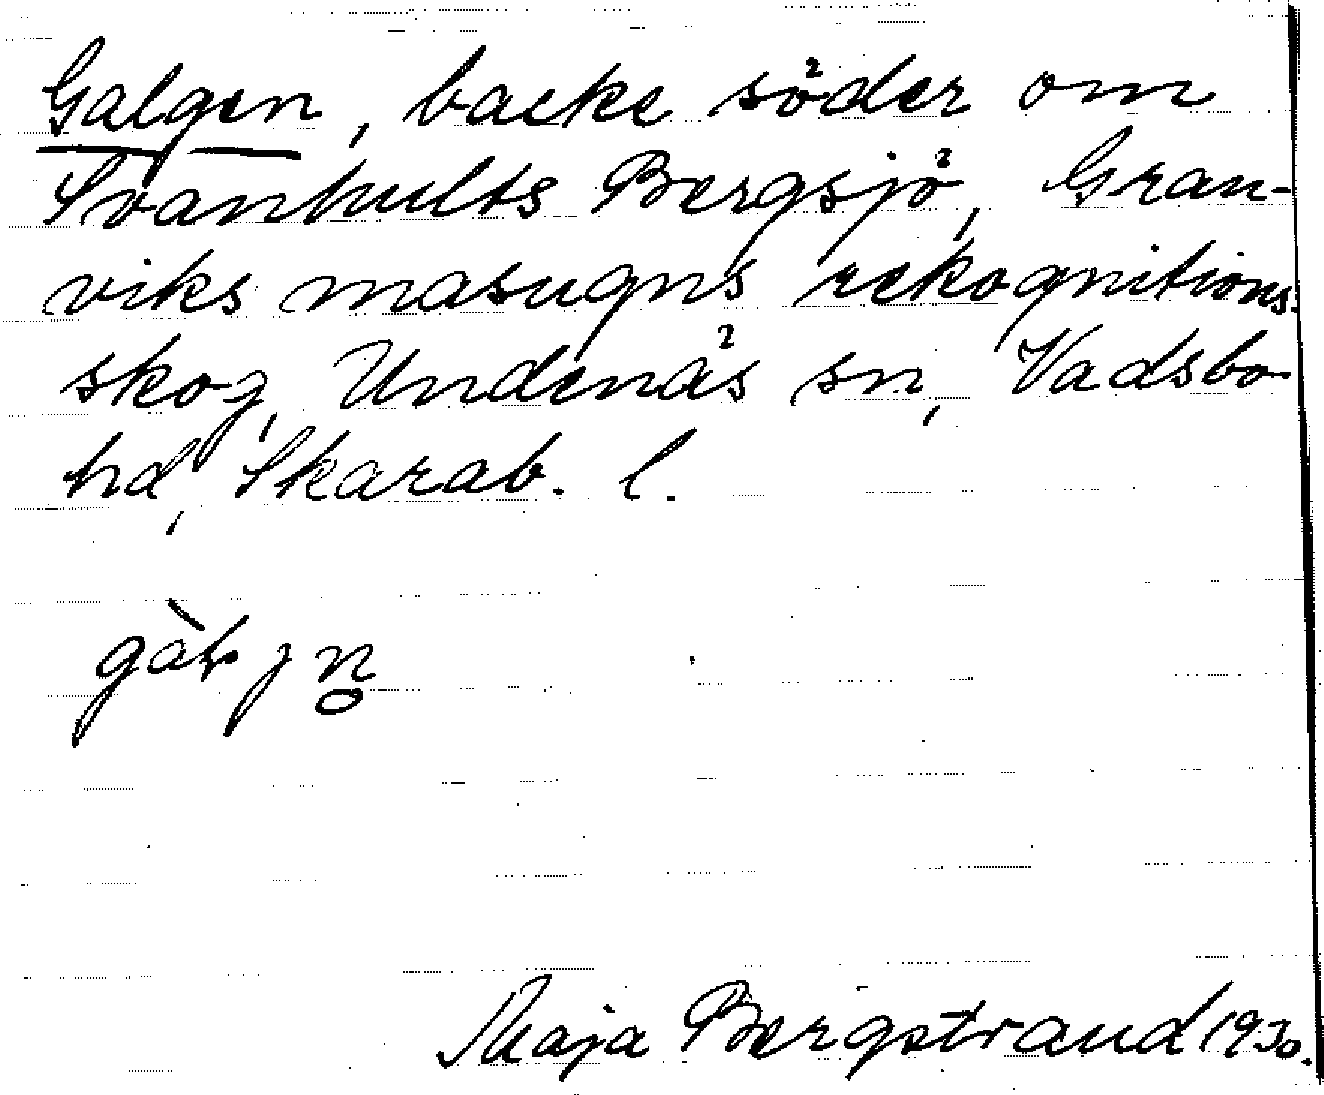 Galgen, backe söder om
Svanhults Bergsjö, Gran-
viks masugns rekognitions-
skog, Undenäs sn, Vadsbo
hd, Skarab. l.
Maja Bergstrand 1930.